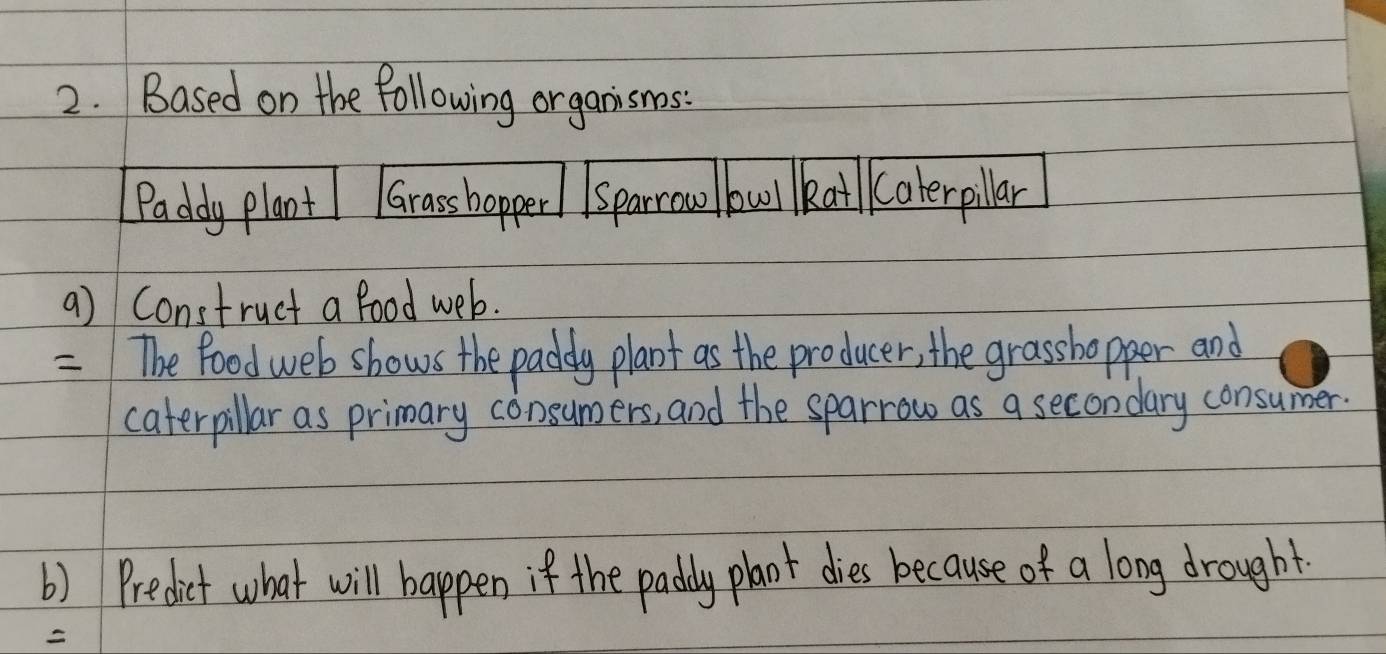 2. Based on the following organisms:
Paddy plant Grasshopper Sparrow owl Rat Caterpillar
a) Construct a food web.
= The food web shows the paddy plant as the producer, the grasshopper and
caterpillar as primary consumers, and the sparrow as a secondary consumer.
b) Predict what will happen if the paddy plant dies because of a long drought.
=